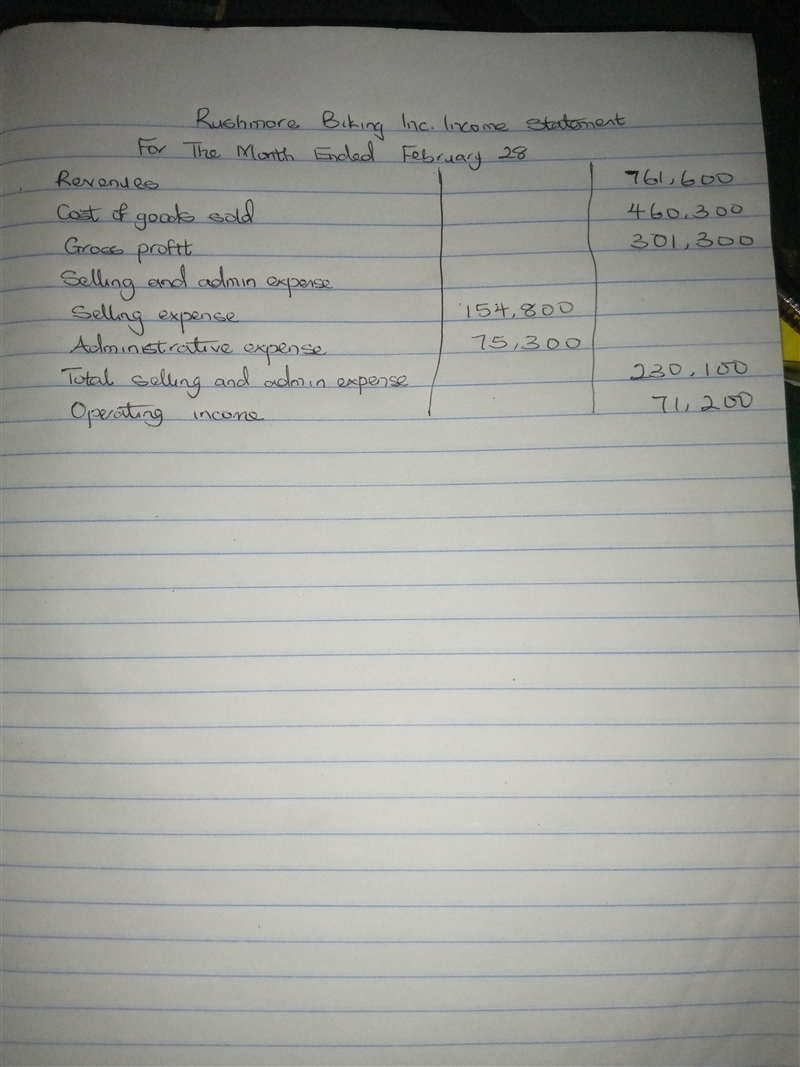 Rushmore Biking Inc. Income Statement
For The Month Ended February 28
Revenues 761,600
Cost of goods sold 460,300
Gross profit 301,300
Selling and admin expense
Selling expense 154,800
Administrative expense 75,300
Total selling and admin expense 230,100
Operating income 71,200